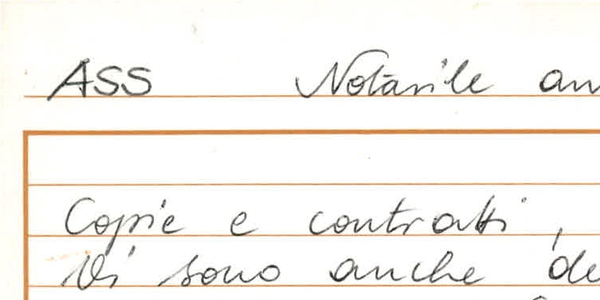 ASS Notarile an
Copie e contratti,
Vi sono anche de